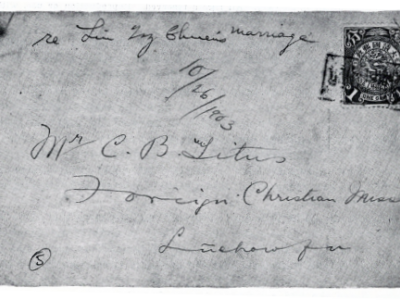 re Lin Chuen's marriage
10/26/1903
Mr C. B. Titus
Foreign Christian Miss
Luchowfu
1
5